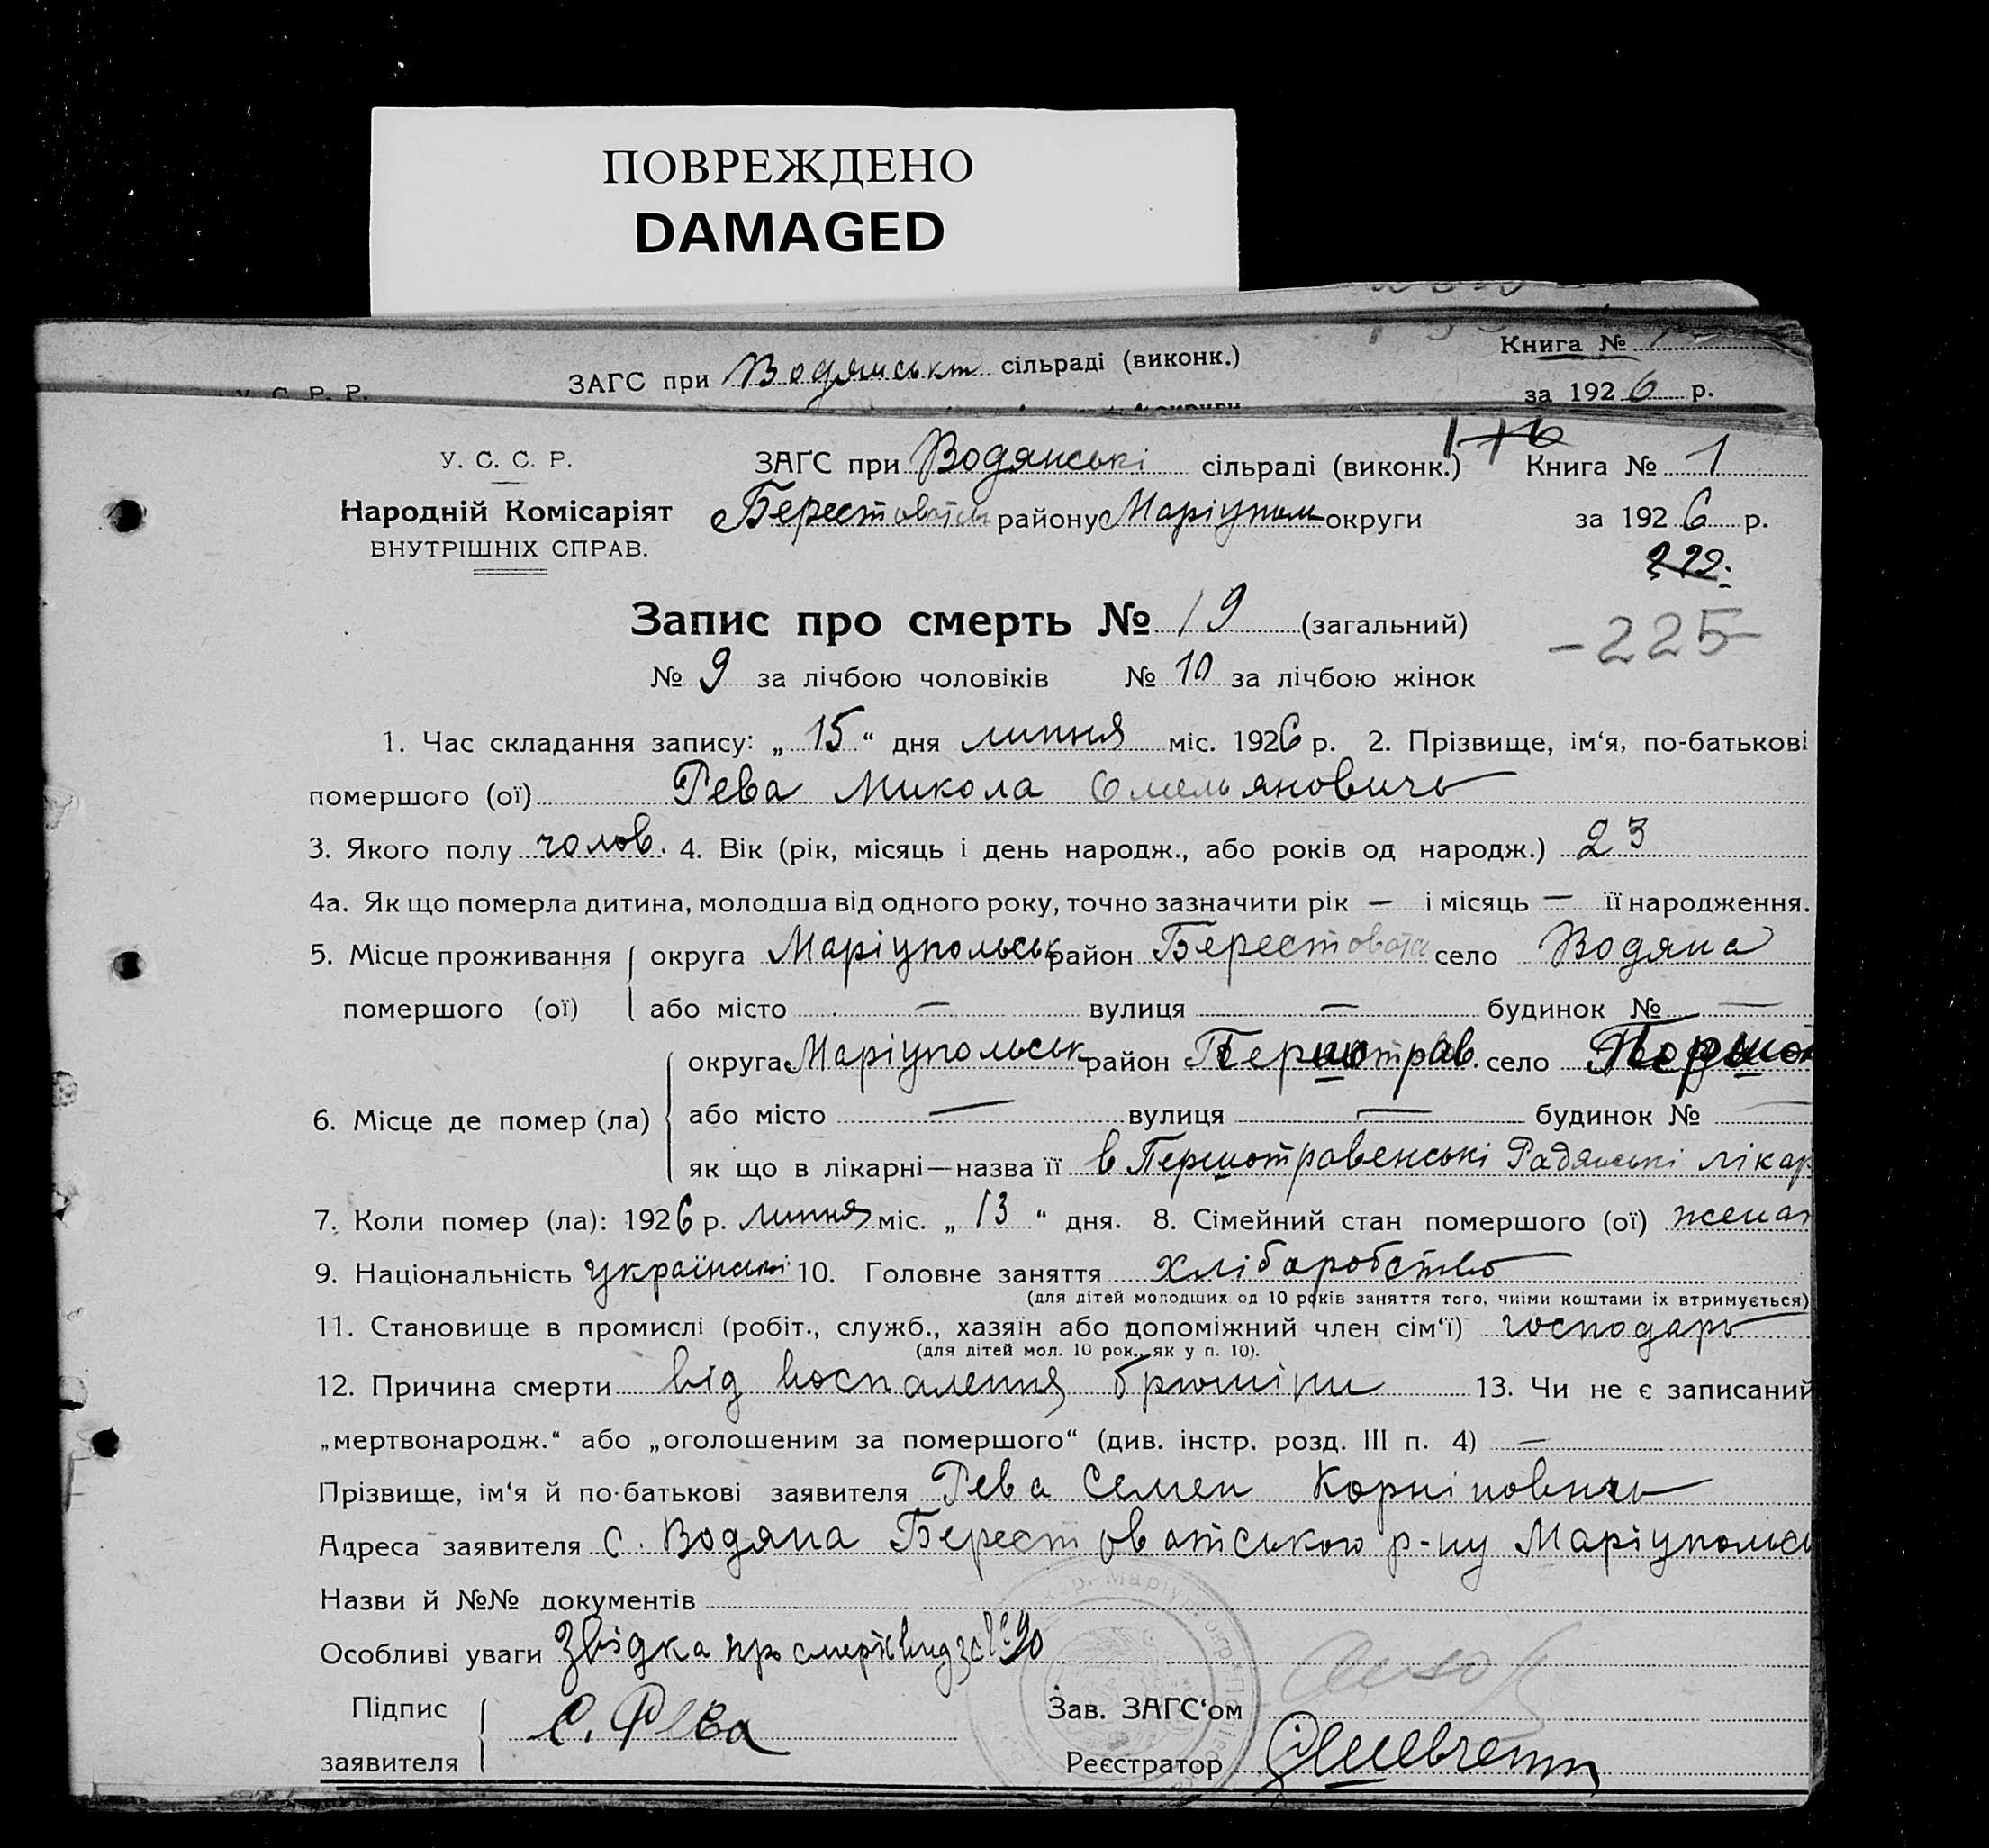 ПОВРЕЖДЕНО
DAMAGED
Книга №
ЗАГС при Водянськт сільраді (виконк.)
У. С. Р. Р.
за 1926 р.
116
У. С. С. Р.
ЗАГС при Водянські сільраді (виконк.) Книга № 1
Народній Комісаріят
Берестоватськ району Маріупол округи за 1926 р.
ВНУТРІШНІХ СПРАВ.
222.
Запис про смерть № 19 (загальний)
-225-
№ 9 за лічбою чоловіків № 10 за лічбою жінок
1. Час складання запису: „15“ дня липня міс. 1926 р. 2. Прізвище, ім‘я, по-батькові
помершого (ої) Рева Микола Омельяновичь
3. Якого полу чолов. 4. Вік (рік, місяць і день народж., або років од народж.) 23
4а. Як що померла дитина, молодша від одного року, точно зазначити рік — і місяць — її народження.
5. Місце проживання округа Маріупольськ район Берестоватс село Водяна
помершого (ої) або місто — вулиця — будинок № —
округа Маріупольськ район Першотрав. село Першот
6. Місце де помер (ла) або місто — вулиця — будинок № —
як що в лікарні—назва її в Першотравенські Радянські лікар
7. Коли помер (ла): 1926 р. липня міс. „13“ дня. 8. Сімейний стан помершого (ої) женат
9. Національність українські 10. Головне заняття хліборобство
(для дітей молодших од 10 років заняття того, чиїми коштами їх втримується)
11. Становище в промислі (робіт., служб., хазяїн або допоміжний член сім‘ї) господарь
(для дітей мол. 10 рок., як у п. 10).
12. Причина смерти від воспалення брюшіни 13. Чи не є записаний
„мертвонародж.“ або „оголошеним за помершого“ (див. інстр. розд. III п. 4) —
Прізвище, ім‘я й по-батькові заявителя Рева Семен Корніповичь
Адреса заявителя с. Водяна Берестоватського р-ну Маріупольсь
Назви й №№ документів
Особливі уваги Звідка про смерть вид за № 90
Підпис
заявителя С. Рева
Зав. ЗАГС‘ом
Реєстратор Шевченко